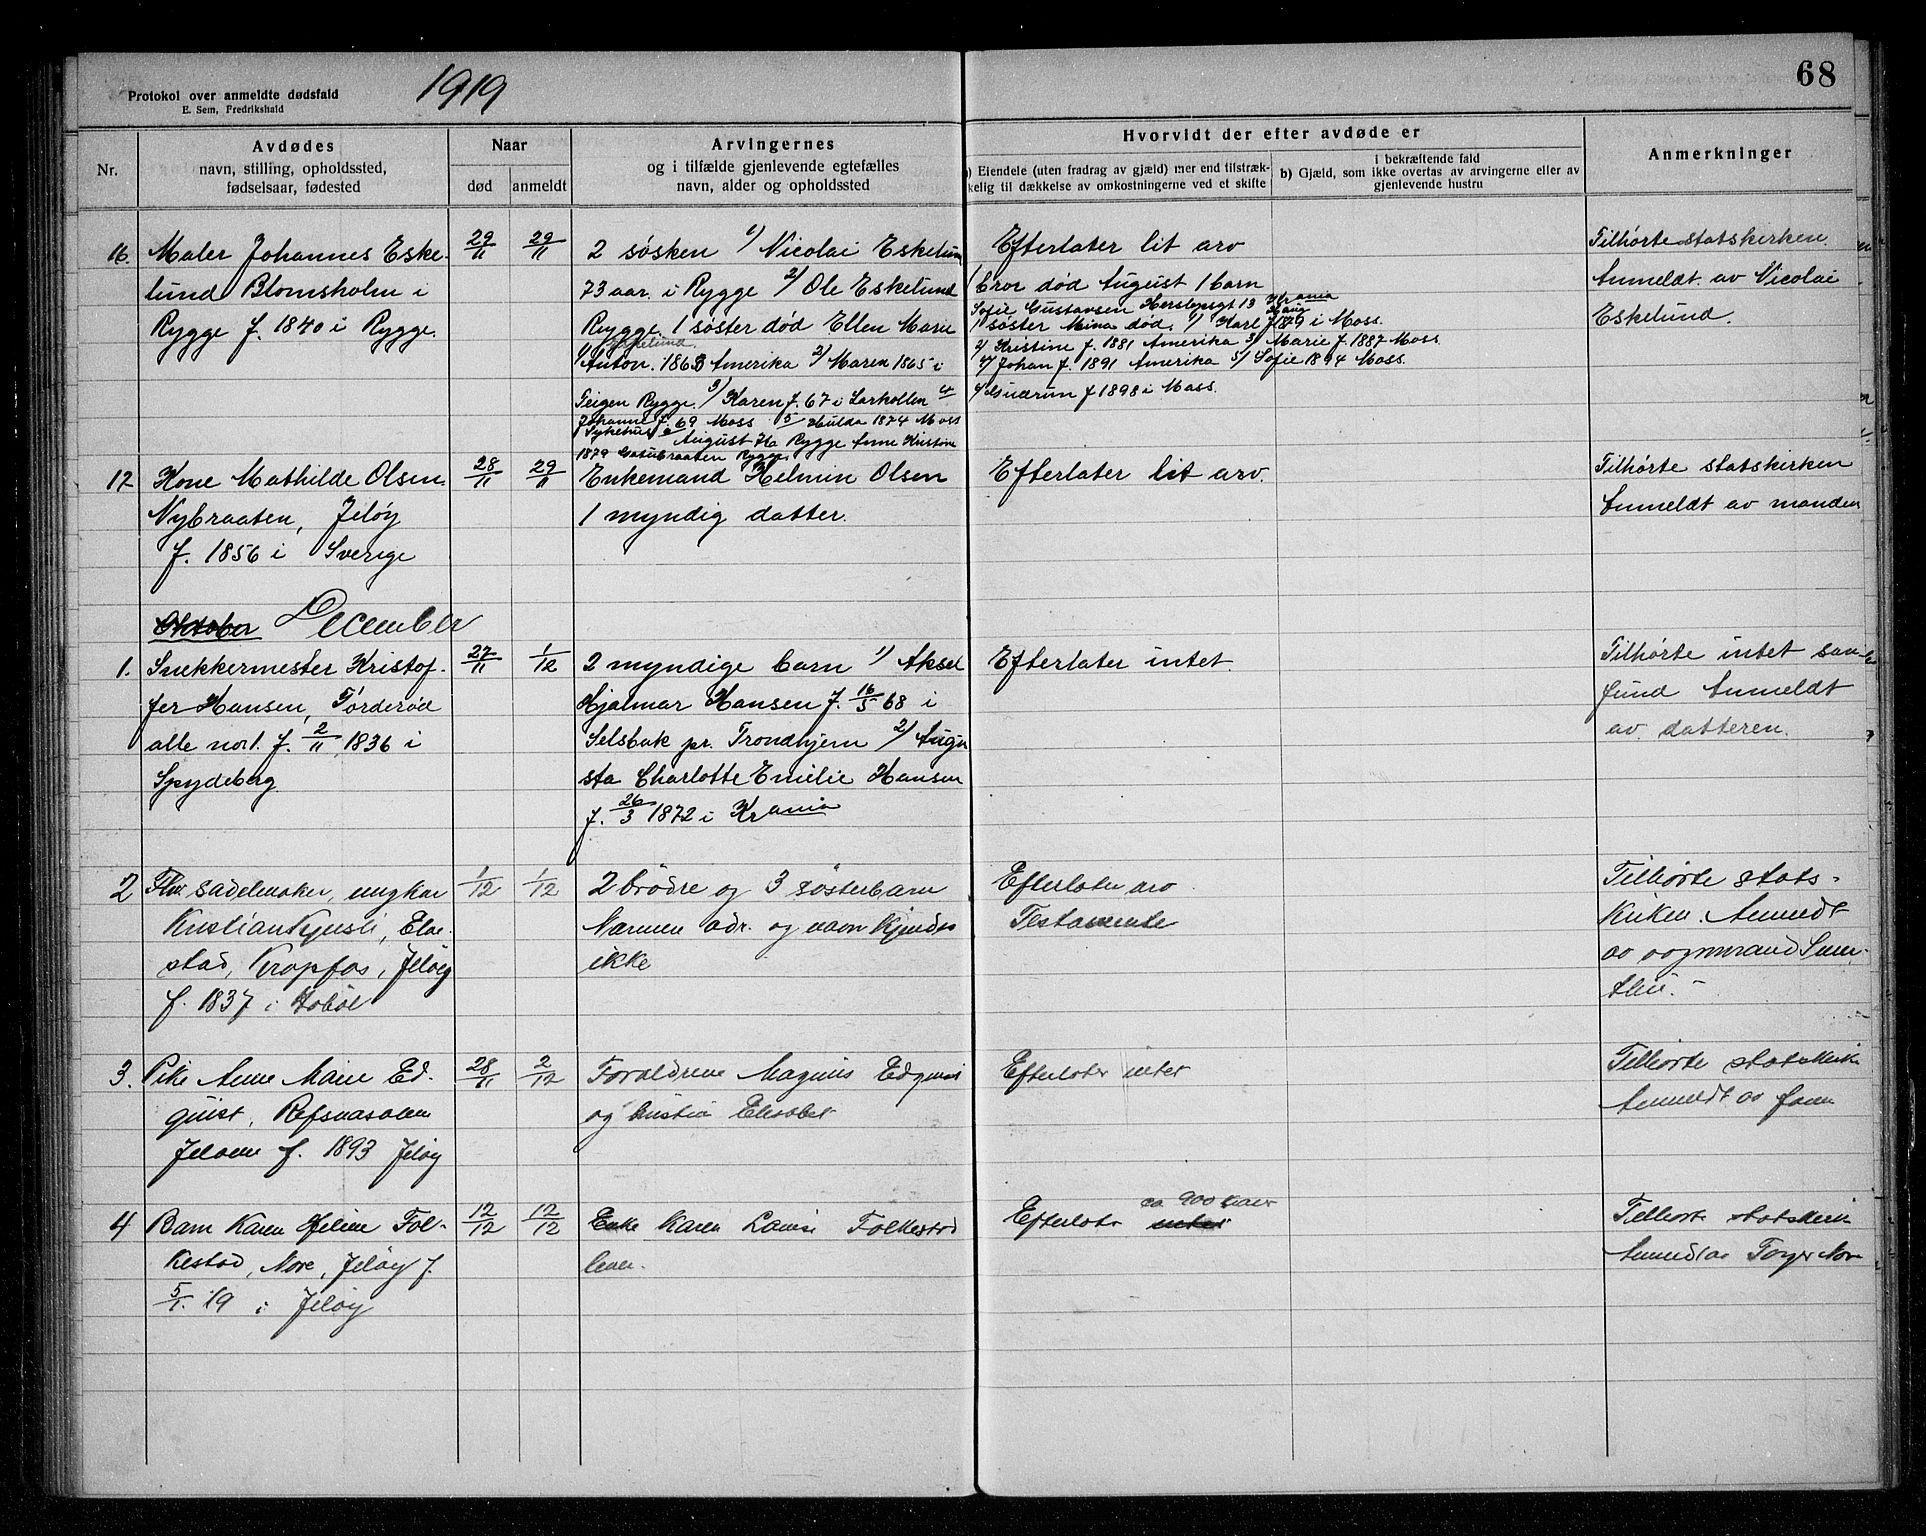 68
Protokol over anmeldte dødsfald
E. Sem, Fredrikshald
1919
Nr.
Avdødes
navn, stilling, opholdssted,
fødselsaar, fødested
Naar
død anmeldt
Arvingernes
og i tilfælde gjenlevende egtefælles
navn, alder og opholdssted
Hvorvidt der efter avdøde er
) Eiendele (uten fradrag av gjæld) mer end tilstræk-
kelig til dækkelse av omkostningerne ved et skifte
i bekræftende fald
b) Gjæld, som ikke overtas av arvingerne eller av
gjenlevende hustru
Anmerkninger
16. Maler Johannes Eske-
lund Blomsholm i
Rygge f. 1840 i Rygge.
29/11 29/11
2 søsken 1) Nicolai Eskelun
73 aar. i Rygge 2) Ole Eskelund
Rygge. 1 søster død Ellen Marie
Eskelund.
1) Anton. 1863 Amerika 2) Maren 1865 i
Teigen Rygge. 3) Karen f. 67 i Larkollen 4
Johanne f. 69 Moss 5 Hulda 1874 Moss
Sykehus 6 August 76 Rygge Anne Kristine
1879 Rygge.
Efterlater lit arv
1 bror død August 1 barn
Sofie Gustavsen Herslepsgt 13 Krania
1 søster Mina død. 1) Karl f. 1879 i Moss.
2) Kristine f. 1881 Amerika 3) Marie f. 1887 Moss
4) Johan f. 1891 Amerika 5) Sofie 1894 Moss.
Gudrun f 1898 i Moss.
Tilhørte statskirken.
Anmeldt av Nicolai
Eskelund.
17 Kone Mathilde Olsen.
Nybraaten, Jeløy
f. 1856 i Sverige
28/11 29/11
Enkemand Helmin Olsen
1 myndig datter.
Efterlater lit arv.
Tilhørte statskirken
Anmeldt av manden
Oktober December
1. Snekkermester Kristof-
fer Hansen, Tørderød
alle nor1. f. 2/11 1836 i
Spydeberg
27/11 1/12
2 myndige barn 1) Aksel
Hjalmar Hansen f. 16/5 68 i
Selsbak pr. Trondhjem 2) Augu
sta Charlotte Emilie Hansen
f. 26/3 1872 i Krania
Efterlater intet.
Tilhørte intet sam-
fund Anmeldt
av datteren.
2 Fhv sadelmaker, ungkar
Kristian Kjusli, Elve-
stad, Kropfos, Jeløy
f. 1837 i Hobøl
1/12 1/12
2 brødre og 3 søsterbarn
Nærmere adr. og navn kjendes
ikke
Efterlater arv
Testamente
Tilhørte stats-
kirken. Anmeldt
av vognmand
3. Pike Anne Marie Ed-
quist, Refsnesalleen
Jeløen f. 1893 Jeløy
28/11 2/12
Forældrene Magnus Edquist
og hustru Elisabet
Efterlater intet
Tilhørte statskirk
Anmeldt av faren
4 Barn Karen Helene Fol-
kestad, Nore, Jeløy f.
5/1. 19 i Jeløy
12/12 12/12
Enke Karen Louise Folkestad
lever.
ca 900 kroner
Efterlater intet
Tilhørte statskirk
Anmeldt av